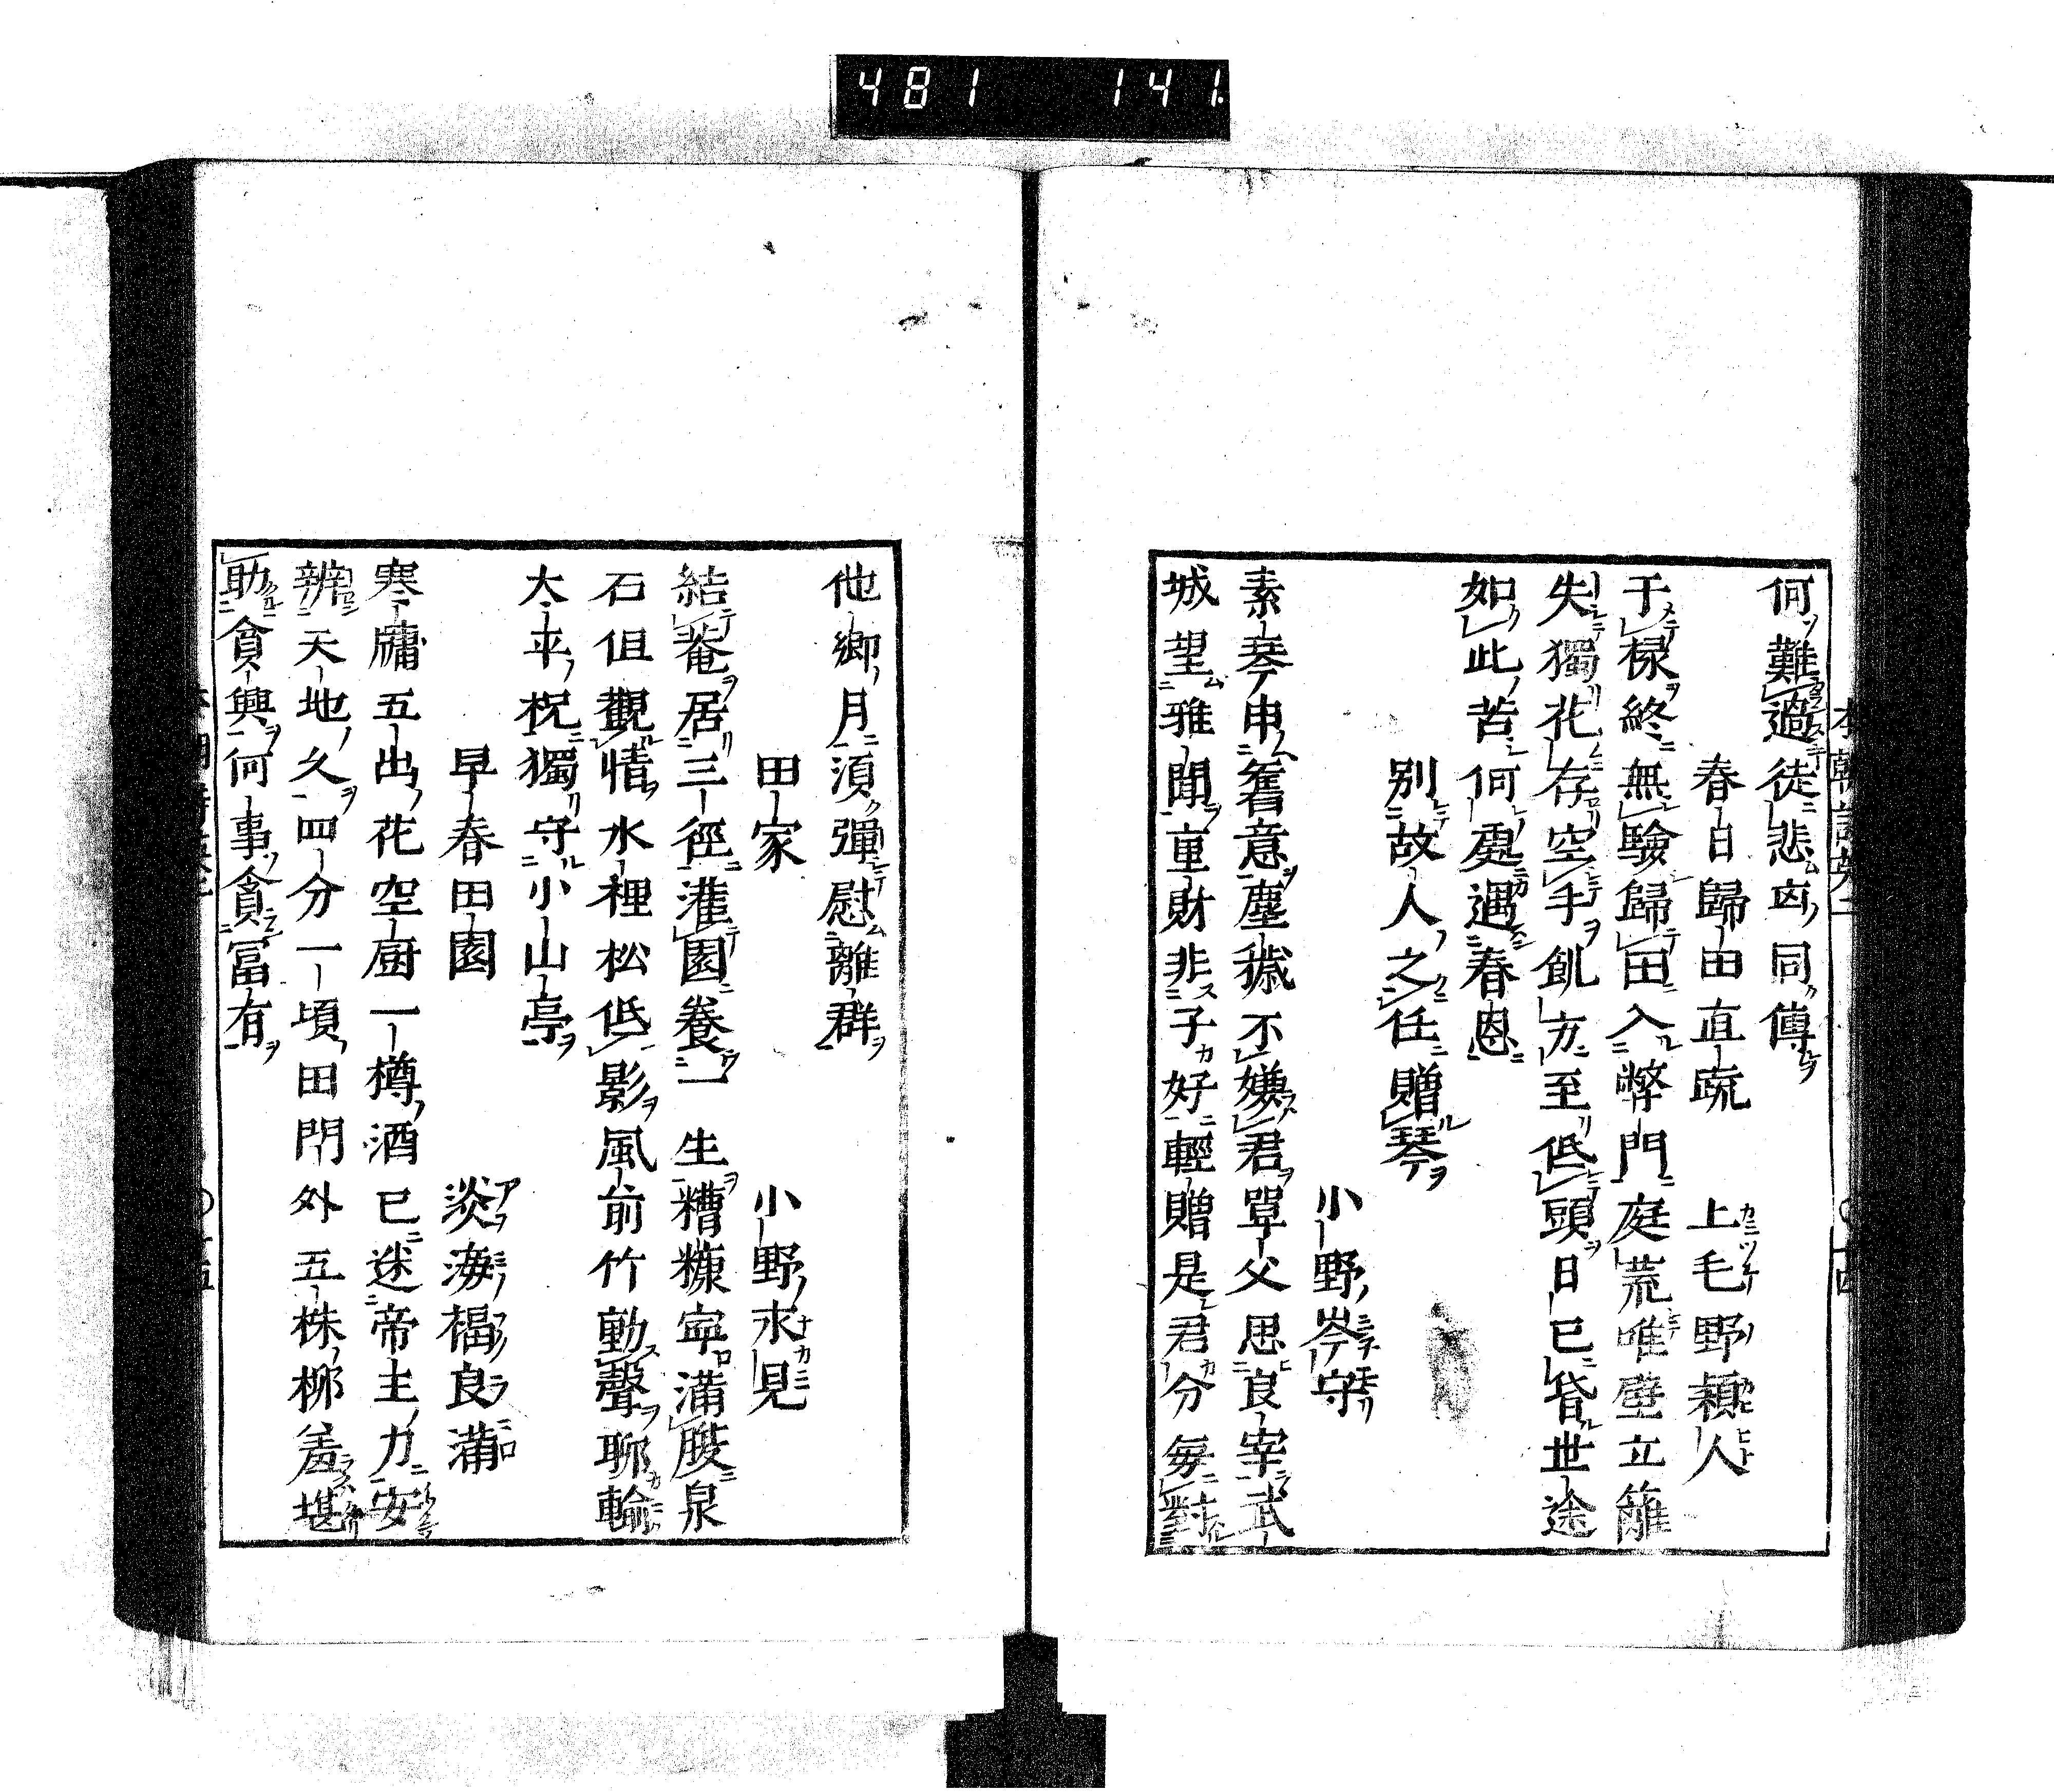 481 141
何難過徒悲凶同傳
春日歸田直疏 上毛野穎人
于祿終無驗歸田入弊門庭荒唯壁立籬
失獨花存空手飢方至低頭日已昏世途
如此苦何處遇春恩
別故人之任贈琴
小野岑守
素琴申舊意塵穢不嫌君單父思良宰武
城望雅聞重財非子好輕贈是君分每對
他鄉月須彈慰離群
田家 小野永見
結菴居三徑灌園養一生糟糠寧滿腹泉
石但觀情水裡松低影風前竹動聲聊輸
太平稅獨守小山亭
早春田園 淡海福良滿
寒牖五出花空厨一樽酒已迷帝主力安
辨天地久四分一頃田門外五株柳羞堪
助貧興何事貪富有